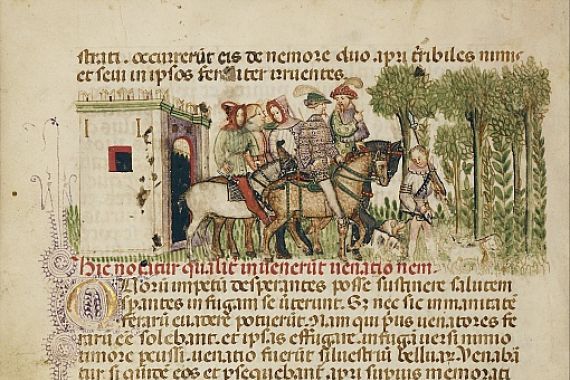 strati. occurrerūt eis de nemore duo apri tribiles nimis
et seui in ipsos feraciter irruentes.
Hic notatur qualit̄ inuenerūt uenationem.
Quorū impetū desperantes posse sustinere salutem
sperantes in fugam se uerterunt. Sz nec sic immanitatē
ferarū euadere potuerūt. Nam qui prius uenatores fe
rarū eē solebant. et ipsas effugare. in fugā uersi nimio
timore pcussi. uenatio fuerūt siluestriū belluar̄. Venabā
tur siquidē eos et psequebant̄ apri supius memorati